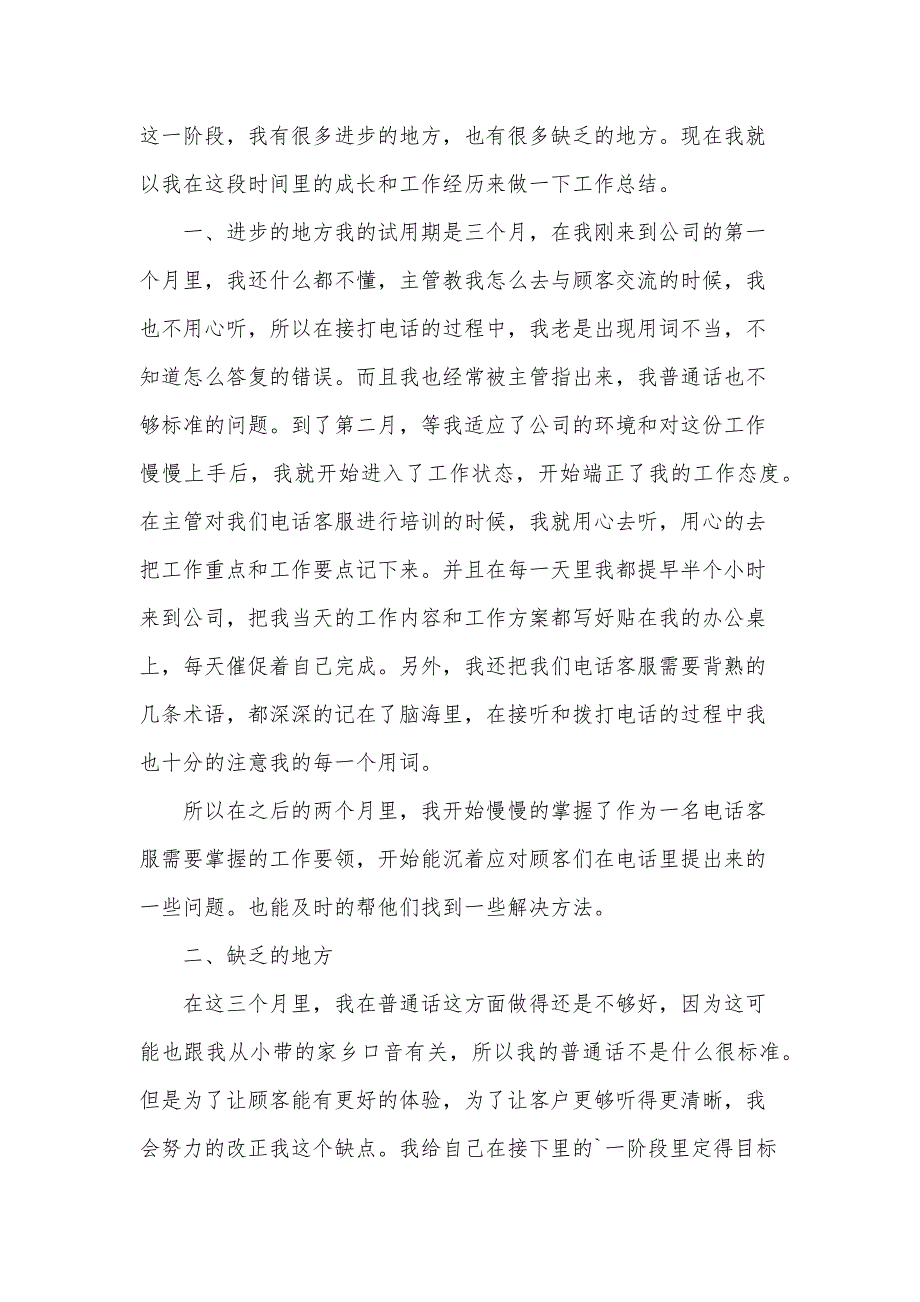 这一阶段，我有很多进步的地方，也有很多缺乏的地方。现在我就
以我在这段时间里的成长和工作经历来做一下工作总结。
一、进步的地方我的试用期是三个月，在我刚来到公司的第一
个月里，我还什么都不懂，主管教我怎么去与顾客交流的时候，我
也不用心听，所以在接打电话的过程中，我老是出现用词不当，不
知道怎么答复的错误。而且我也经常被主管指出来，我普通话也不
够标准的问题。到了第二月，等我适应了公司的环境和对这份工作
慢慢上手后，我就开始进入了工作状态，开始端正了我的工作态度。
在主管对我们电话客服进行培训的时候，我就用心去听，用心的去
把工作重点和工作要点记下来。并且在每一天里我都提早半个小时
来到公司，把我当天的工作内容和工作方案都写好贴在我的办公桌
上，每天催促着自己完成。另外，我还把我们电话客服需要背熟的
几条术语，都深深的记在了脑海里，在接听和拨打电话的过程中我
也十分的注意我的每一个用词。
所以在之后的两个月里，我开始慢慢的掌握了作为一名电话客
服需要掌握的工作要领，开始能沉着应对顾客们在电话里提出来的
一些问题。也能及时的帮他们找到一些解决方法。
二、缺乏的地方
在这三个月里，我在普通话这方面做得还是不够好，因为这可
能也跟我从小带的家乡口音有关，所以我的普通话不是什么很标准。
但是为了让顾客能有更好的体验，为了让客户更够听得更清晰，我
会努力的改正我这个缺点。我给自己在接下里的`一阶段里定得目标